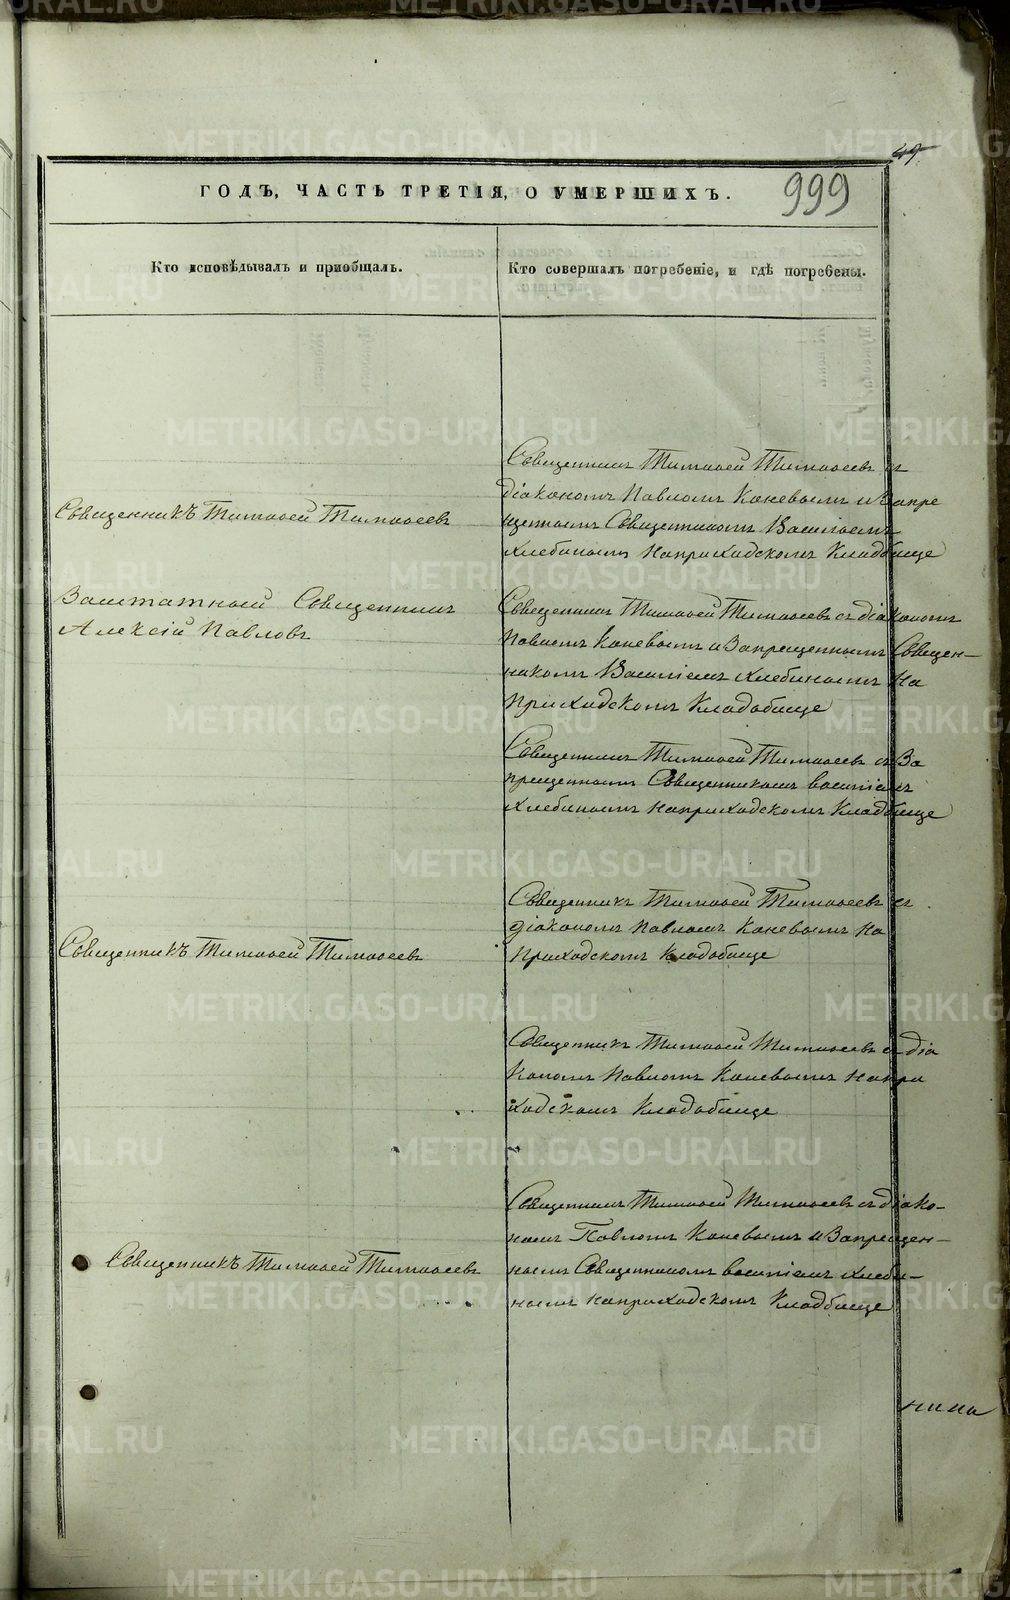 49
ГОДЪ, ЧАСТЬ ТРЕТІЯ, О УМЕРШИХЪ.
999
Кто исповѣдывалъ и пріобщалъ.
Кто совершалъ погребеніе, и гдѣ погребены.
Священникъ Тимоѳей Тимоѳеевъ
Священникъ Тимоѳей Тимоѳеевъ съ
діакономъ Павломъ Каневымъ и Запре
щеннымъ Священникомъ Васильемъ
Хлебинымъ на приходскомъ Кладбище
Заштатный Священникъ
Алексій Павловъ
Священникъ Тимоѳей Тимоѳеевъ съ діакономъ
Павломъ Каневымъ и Запрещеннымъ Священ-
никомъ Василіемъ Хлебинымъ на
приходскомъ Кладобище
Священникъ Тимоѳей Тимоѳеевъ съ За
прещеннымъ Священникомъ Василіемъ
Хлебинымъ на приходскомъ Кладбище
Священникъ Тимоѳей Тимоѳеевъ
Священникъ Тимоѳей Тимоѳеевъ съ
діакономъ Павломъ Каневымъ на
приходскомъ Кладобище
Священникъ Тимоѳей Тимоѳеевъ съ діа
кономъ Павломъ Каневымъ на при
ходскомъ Кладобище
Священникъ Тимоѳей Тимоѳеевъ
Священникъ Тимоѳей Тимоѳеевъ съ діако-
номъ Павломъ Каневымъ и Запрещен-
нымъ Священникомъ Василіемъ Хлеби-
нымъ на приходскомъ Кладбище
METRIKI.GASO-URAL.RU